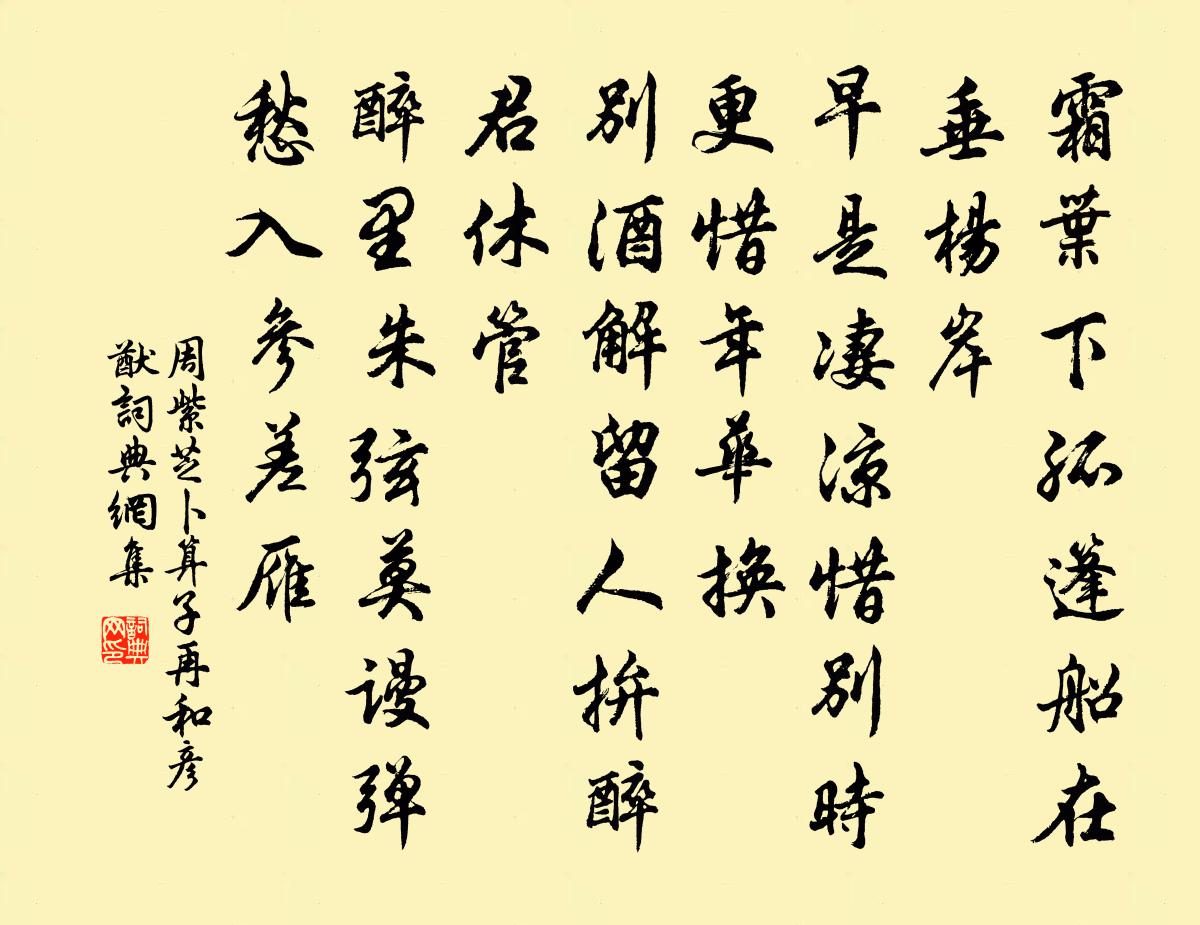 霜葉下孤蓬船在
垂楊岸
早是凄涼惜別時
更惜年華換
別酒解留人拚醉
君休管
醉里朱弦莫謾弹
愁入參差雁
周紫芝卜算子再和彦
猷詞典網集
詞典网印